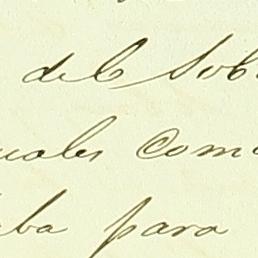 del Sob
uales com
ba para